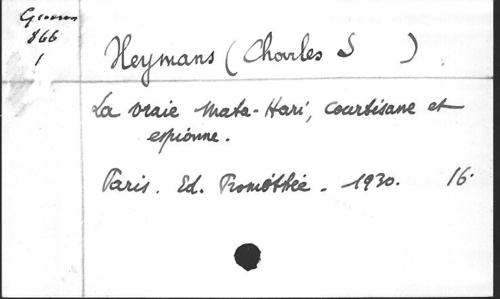 866
1
Heymans (Charles S )
La vraie Mata-Hari, courtisane et
espionne.
Paris. Ed. Prométhée. 1930. 16.